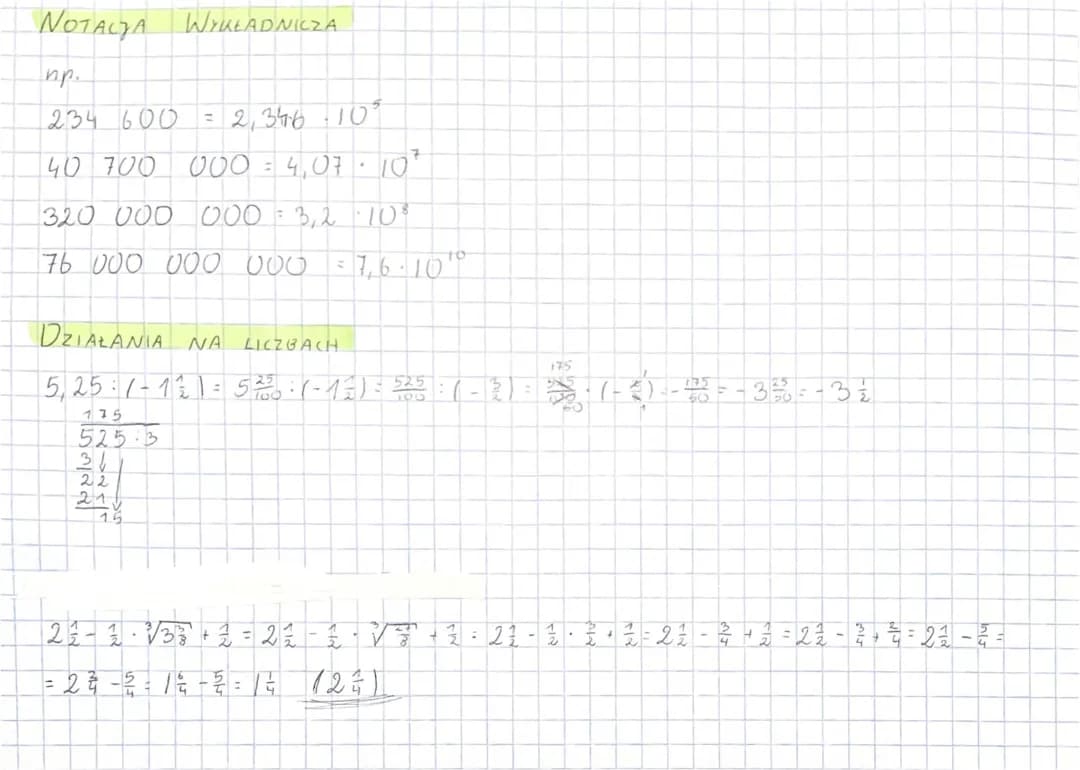 NOTACJA WYKŁADNICZA
np.
234 600 = 2,346 · 10⁵
40 700 000 = 4,07 · 10⁷
320 000 000 = 3,2 · 10⁸
76 000 000 000 = 7,6 · 10¹⁰
DZIAŁANIA NA LICZBACH
5,25 : (-1 1/2) = 5 25/100 : (-1 1/2) = 525/100 : (-3/2) = 175 525/100 50 · (-2/3 1 1) = -175/50 = -3 25/50 = -3 1/2
175
525 : 3
3
22
21
15
2 1/2 - 1/2 · ³√3 3/8 + 1/2 = 2 1/2 - 1/2 · ³√27/8 + 1/2 = 2 1/2 - 1/2 · 3/2 + 1/2 = 2 1/2 - 3/4 + 1/2 = 2 1/2 - 3/4 + 2/4 = 2 1/2 - 5/4 =
= 2 2/4 - 5/4 = 1 6/4 - 5/4 = 1 1/4 (2 1/4)